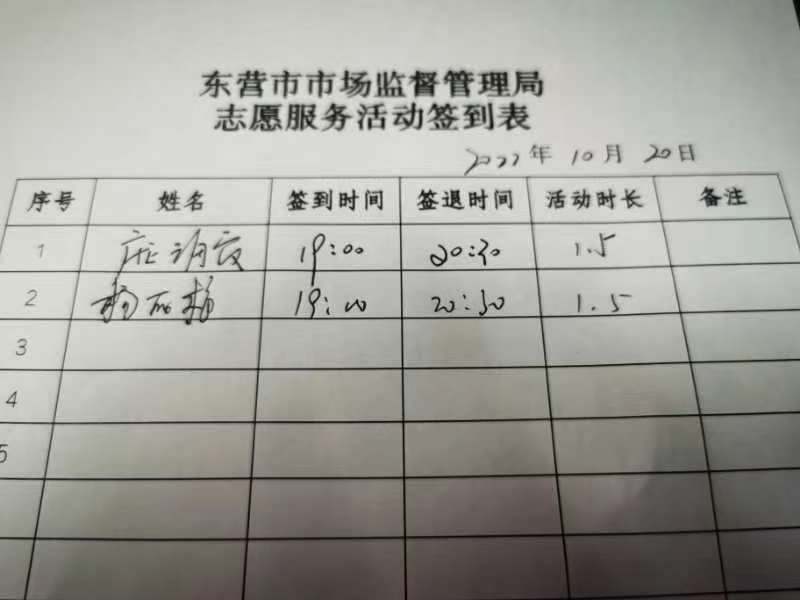 东营市市场监督管理局
志愿服务活动签到表
2022年 10月 20日
序号 姓名 签到时间 签退时间 活动时长 备注
1 19:00 20:30 1.5
2 19:00 20:30 1.5
3
4
5